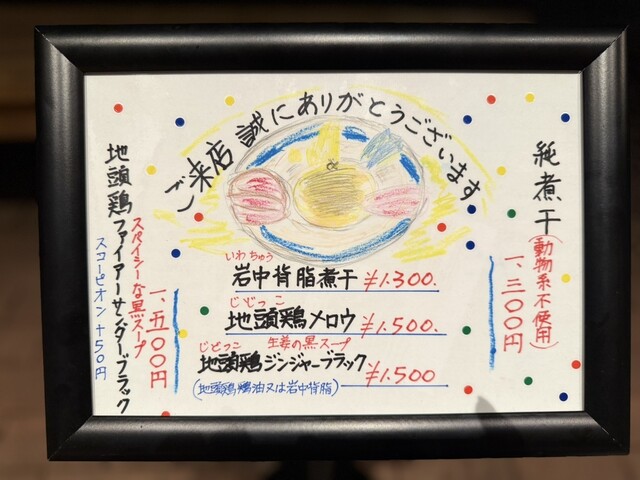 ご来店誠にありがとうございます
純煮干(動物系不使用)
一、三〇〇円
いわちゅう
岩中背脂煮干 ¥1.300.
じどっこ
地頭鶏メロウ ¥1.500.
じどっこ 生姜の黒スープ
地頭鶏ジンジャーブラック ¥1.500
(地頭鶏鶏油又は岩中背脂)
地頭鶏ファイアーサンダーブラック
スパイシーな黒スープ
一、五〇〇円
スコーピオン+50円